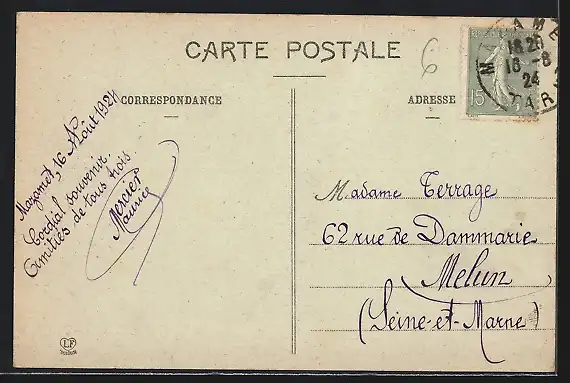 CARTE POSTALE
CORRESPONDANCE
ADRESSE
6
MAZAMET
18 20
16 -8
24
TARN
15
Mazamet, 16 Août 1924
Cordial souvenir.
Amitiés de tous trois.
Mercier
Maurice
Madame Terrage
62 rue de Dammarie
Melun
(Seine-et-Marne)
LF